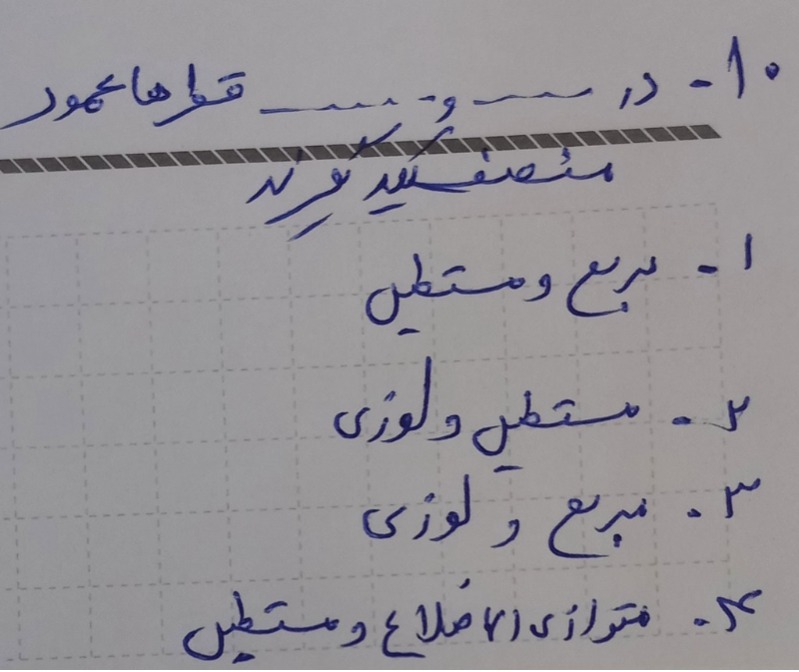 ۱۰- در ------ و ------ قطرها عمود
منصف یکدیگرند
۱- مربع و مستطیل
۲- مستطیل و لوزی
۳- مربع و لوزی
۴- متوازی الاضلاع و مستطیل